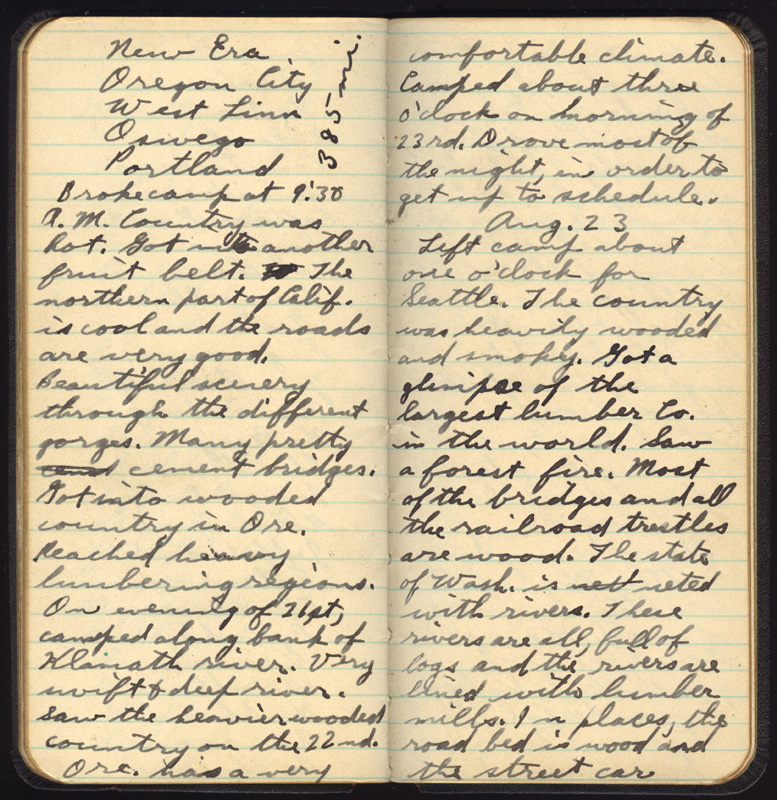 New Era
Oregon City
West Linn
Oswego
Portland
385 mi.
Broke camp at 9:30
A.M. Country was
hot. Got into another
fruit belt. The
northern part of Calif.
is cool and the roads
are very good.
Beautiful scenery
through the different
gorges. Many pretty
cement bridges.
Got into wooded
country in Ore.
Reached heavy
lumbering regions.
On evening of 21st,
camped along bank of
Klamath river. Very
swift & deep river.
Saw the heavier wooded
country on the 22nd.
Ore. has a very
comfortable climate.
Camped about three
o'clock on morning of
23rd. Drove most of
the night, in order to
get up to schedule.
Aug. 23
Left camp about
one o'clock for
Seattle. The country
was heavily wooded
and smoky. Got a
glimpse of the
largest lumber Co.
in the world. Saw
a forest fire. Most
of the bridges and all
the railroad trestles
are wood. The state
of Wash. is net neted
with rivers. These
rivers are all full of
logs and the rivers are
lined with lumber
mills. In places, the
road bed is wood and
the street car